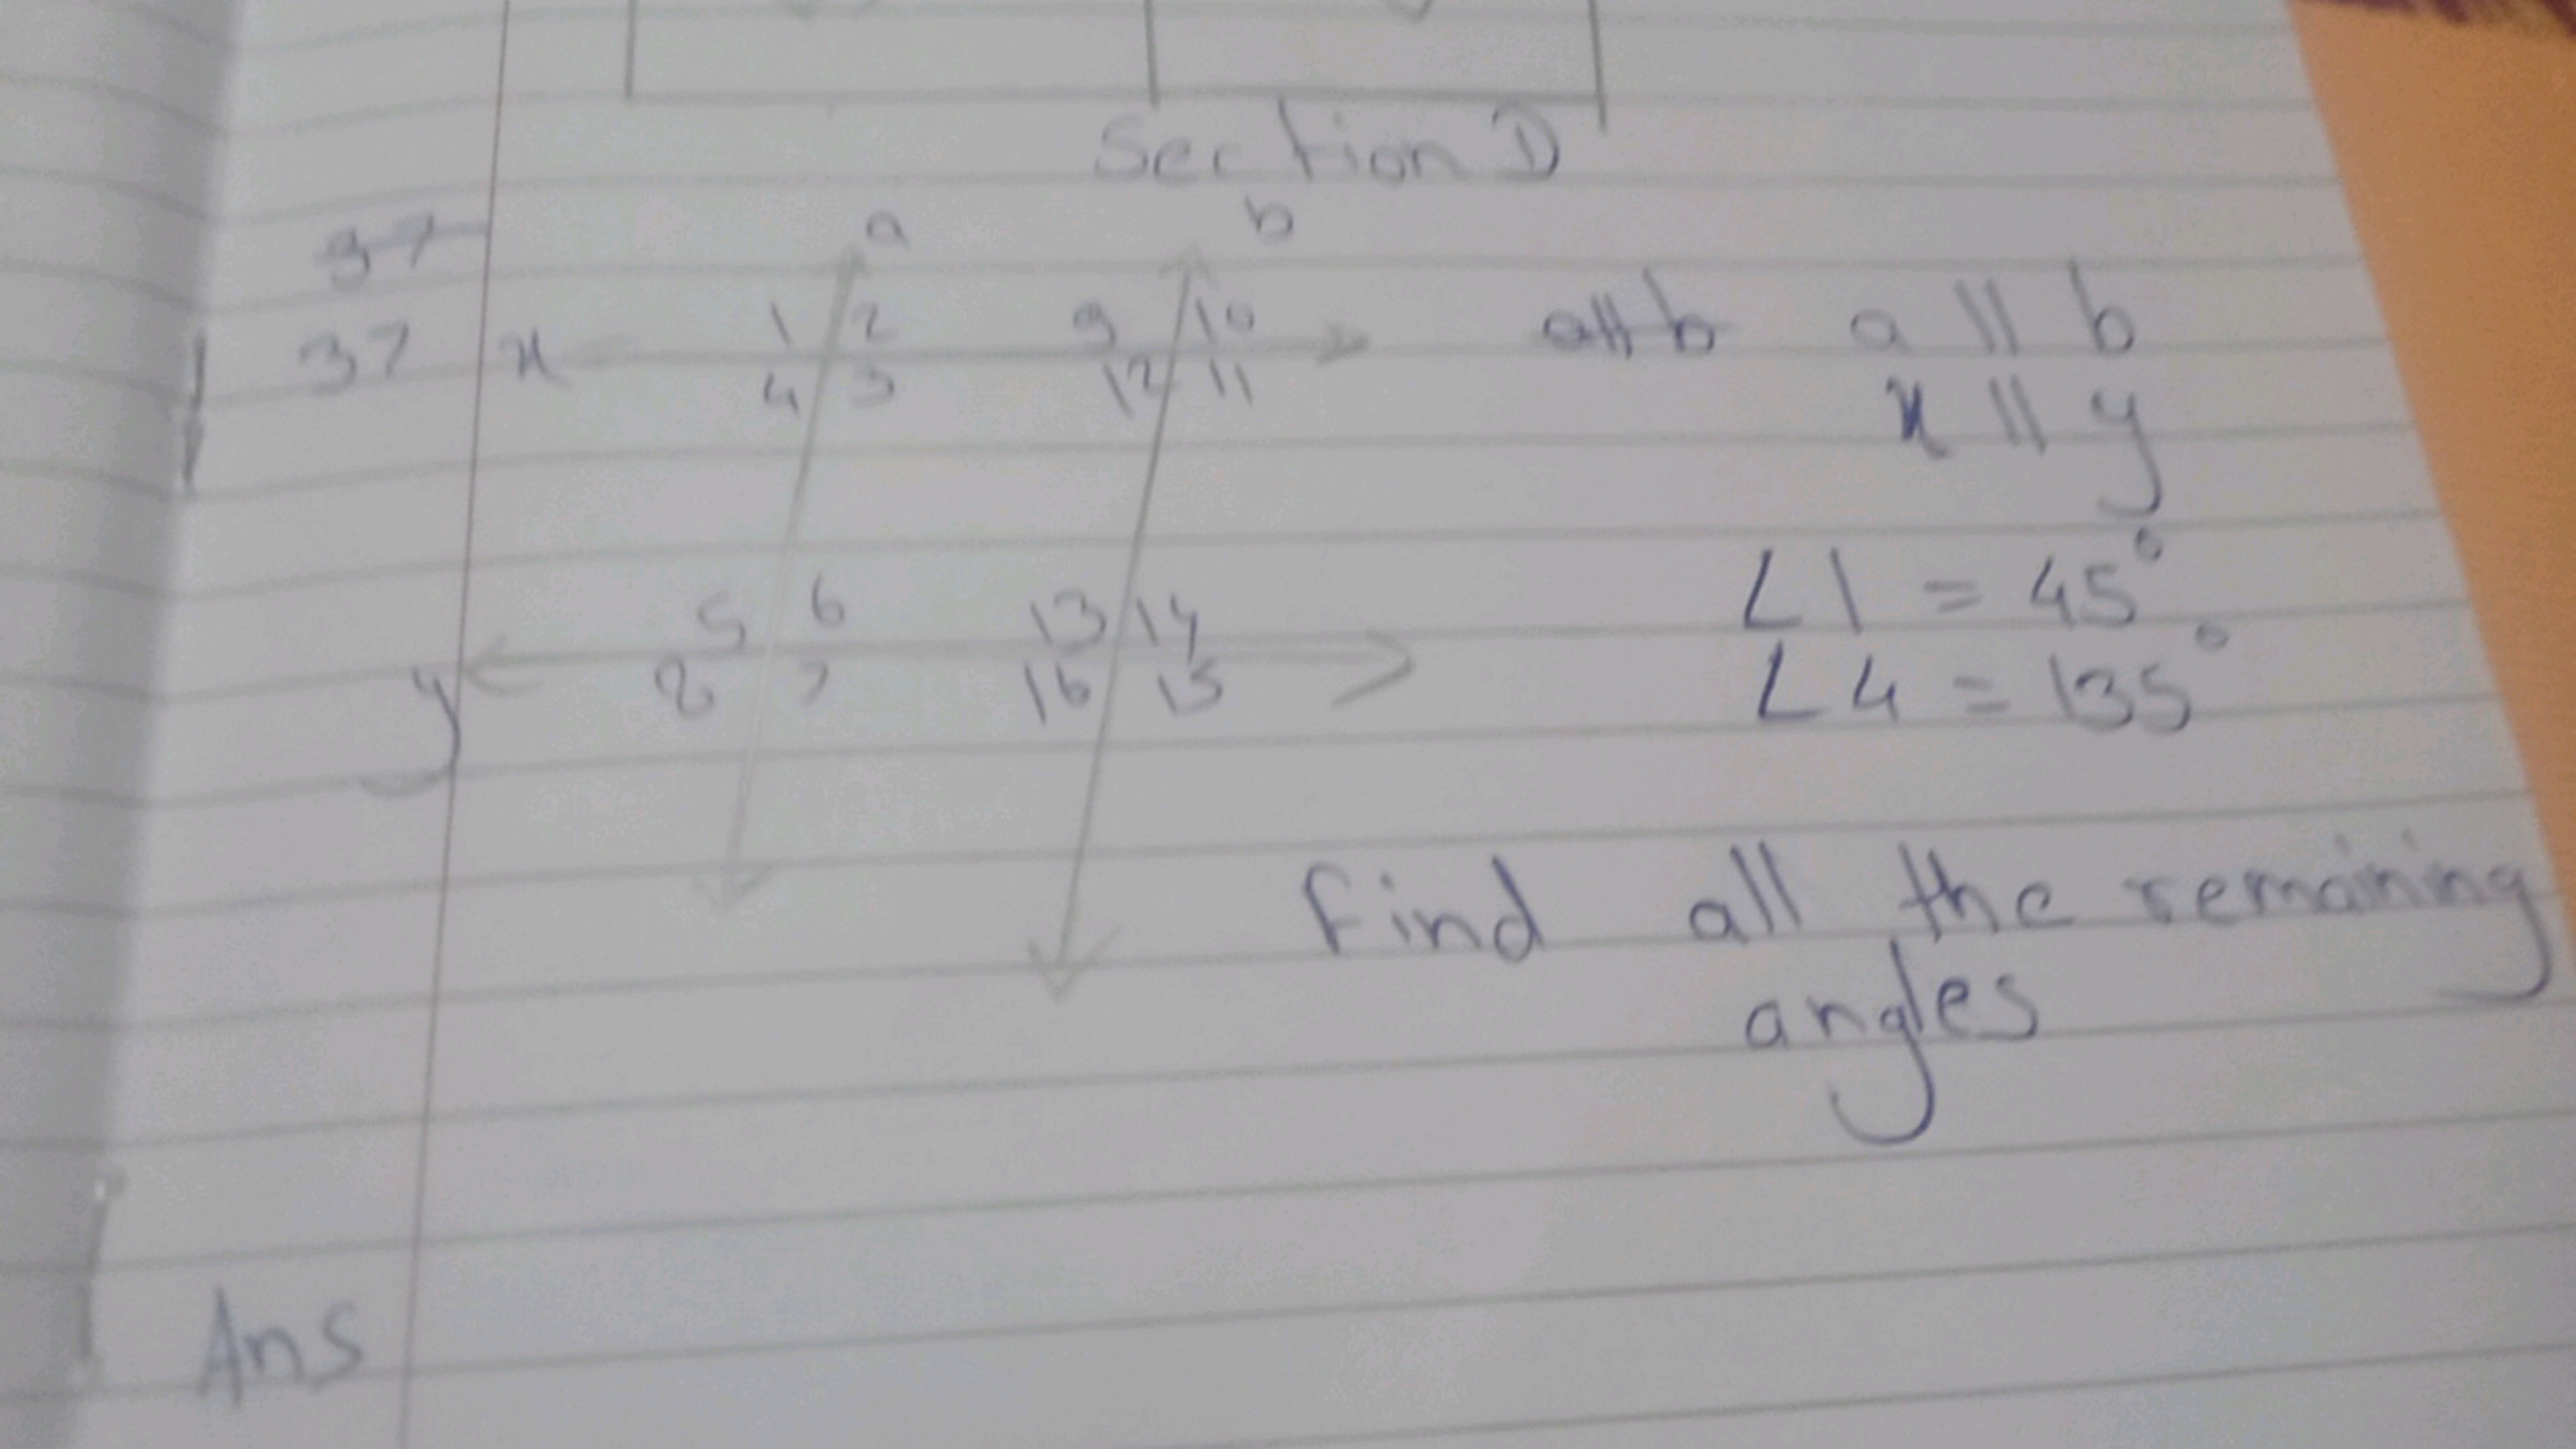 Section D
37
a b
37 x 1 2 9 10 a||b a || b
4 3 12 11 x || y
∠1 = 45°
5 6 13 14
y 8 7 16 15 ∠4 = 135°
Find all the remaining
angles
Ans